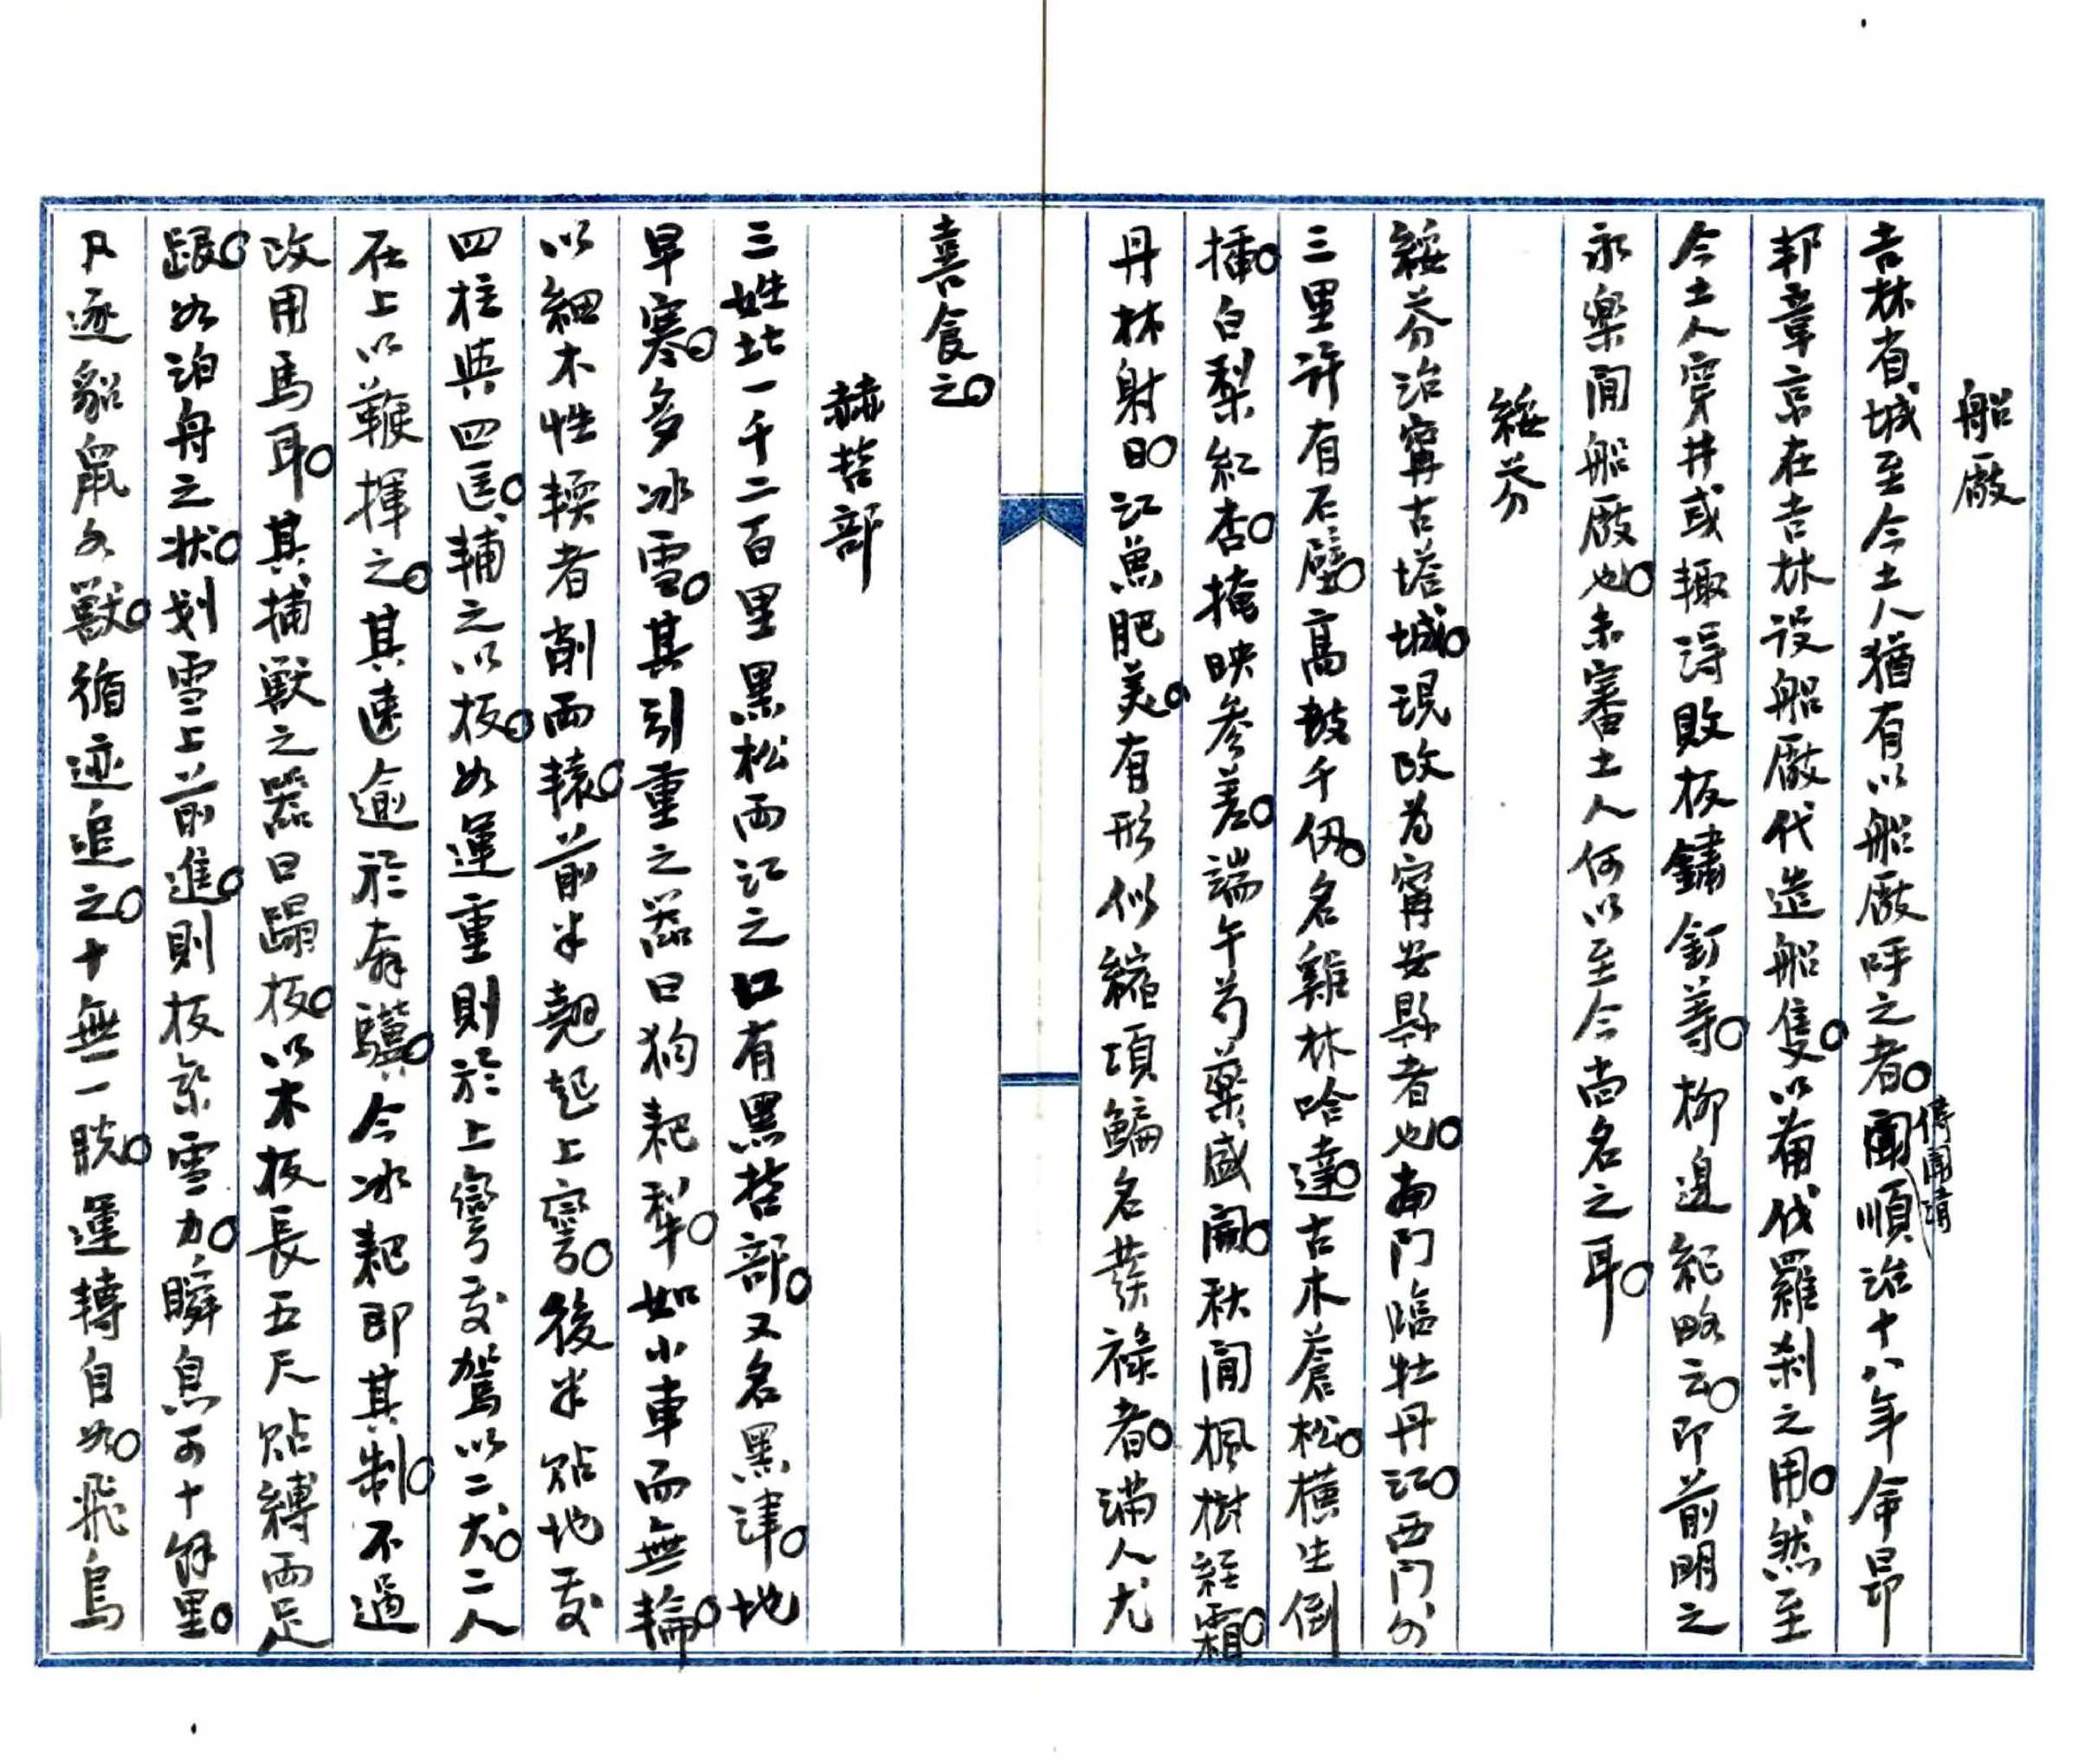 船廠
吉林省城至今土人猶有以船廠呼之者。聞順治十八年命昂
傳聞清
邦章京在吉林設船廠代造船隻。以備伐羅刹之用。然至
今土人穿井或掘得敗板鏽釘等。柳邊紀略云。即前明之
永樂間船廠也。未審土人何以至今尚名之耳。
綏芬
綏芬治寗古塔城。現改為寗安縣者也。南門臨牡丹江。西門外
三里許有石壁。高鼓千仭。名雞林哈達。古木蒼松。橫生倒
插。白梨紅杏。掩映參差。端午芍藥盛開。秋間楓樹經霜。
丹林射日。江魚肥美。有形似縮項鯿名發祿者。滿人尤
喜食之。
赫哲部
三姓北一千二百里黑松兩江之口有黑哲部。又名黑津。地
早寒。多冰雪。其引重之器曰狗耙犁。如小車而無輪。
以細木性輭者削兩轅。前半翹起上彎。後半貼地交
四柱與四匡。輔之以板。如運重則於上彎交駕以二犬。二人
在上以鞭揮之。其速逾於奔驥。今冰耙即其制。不過
改用馬耳。其捕獸之器曰蹋板。以木板長五尺貼縛兩足
跟。如泊舟之狀。划雪上前進。則板乘雪力。瞬息可十餘里。
凡逐貂鼠各獸。循迹追之。十無一脱。運轉自如。飛鳥